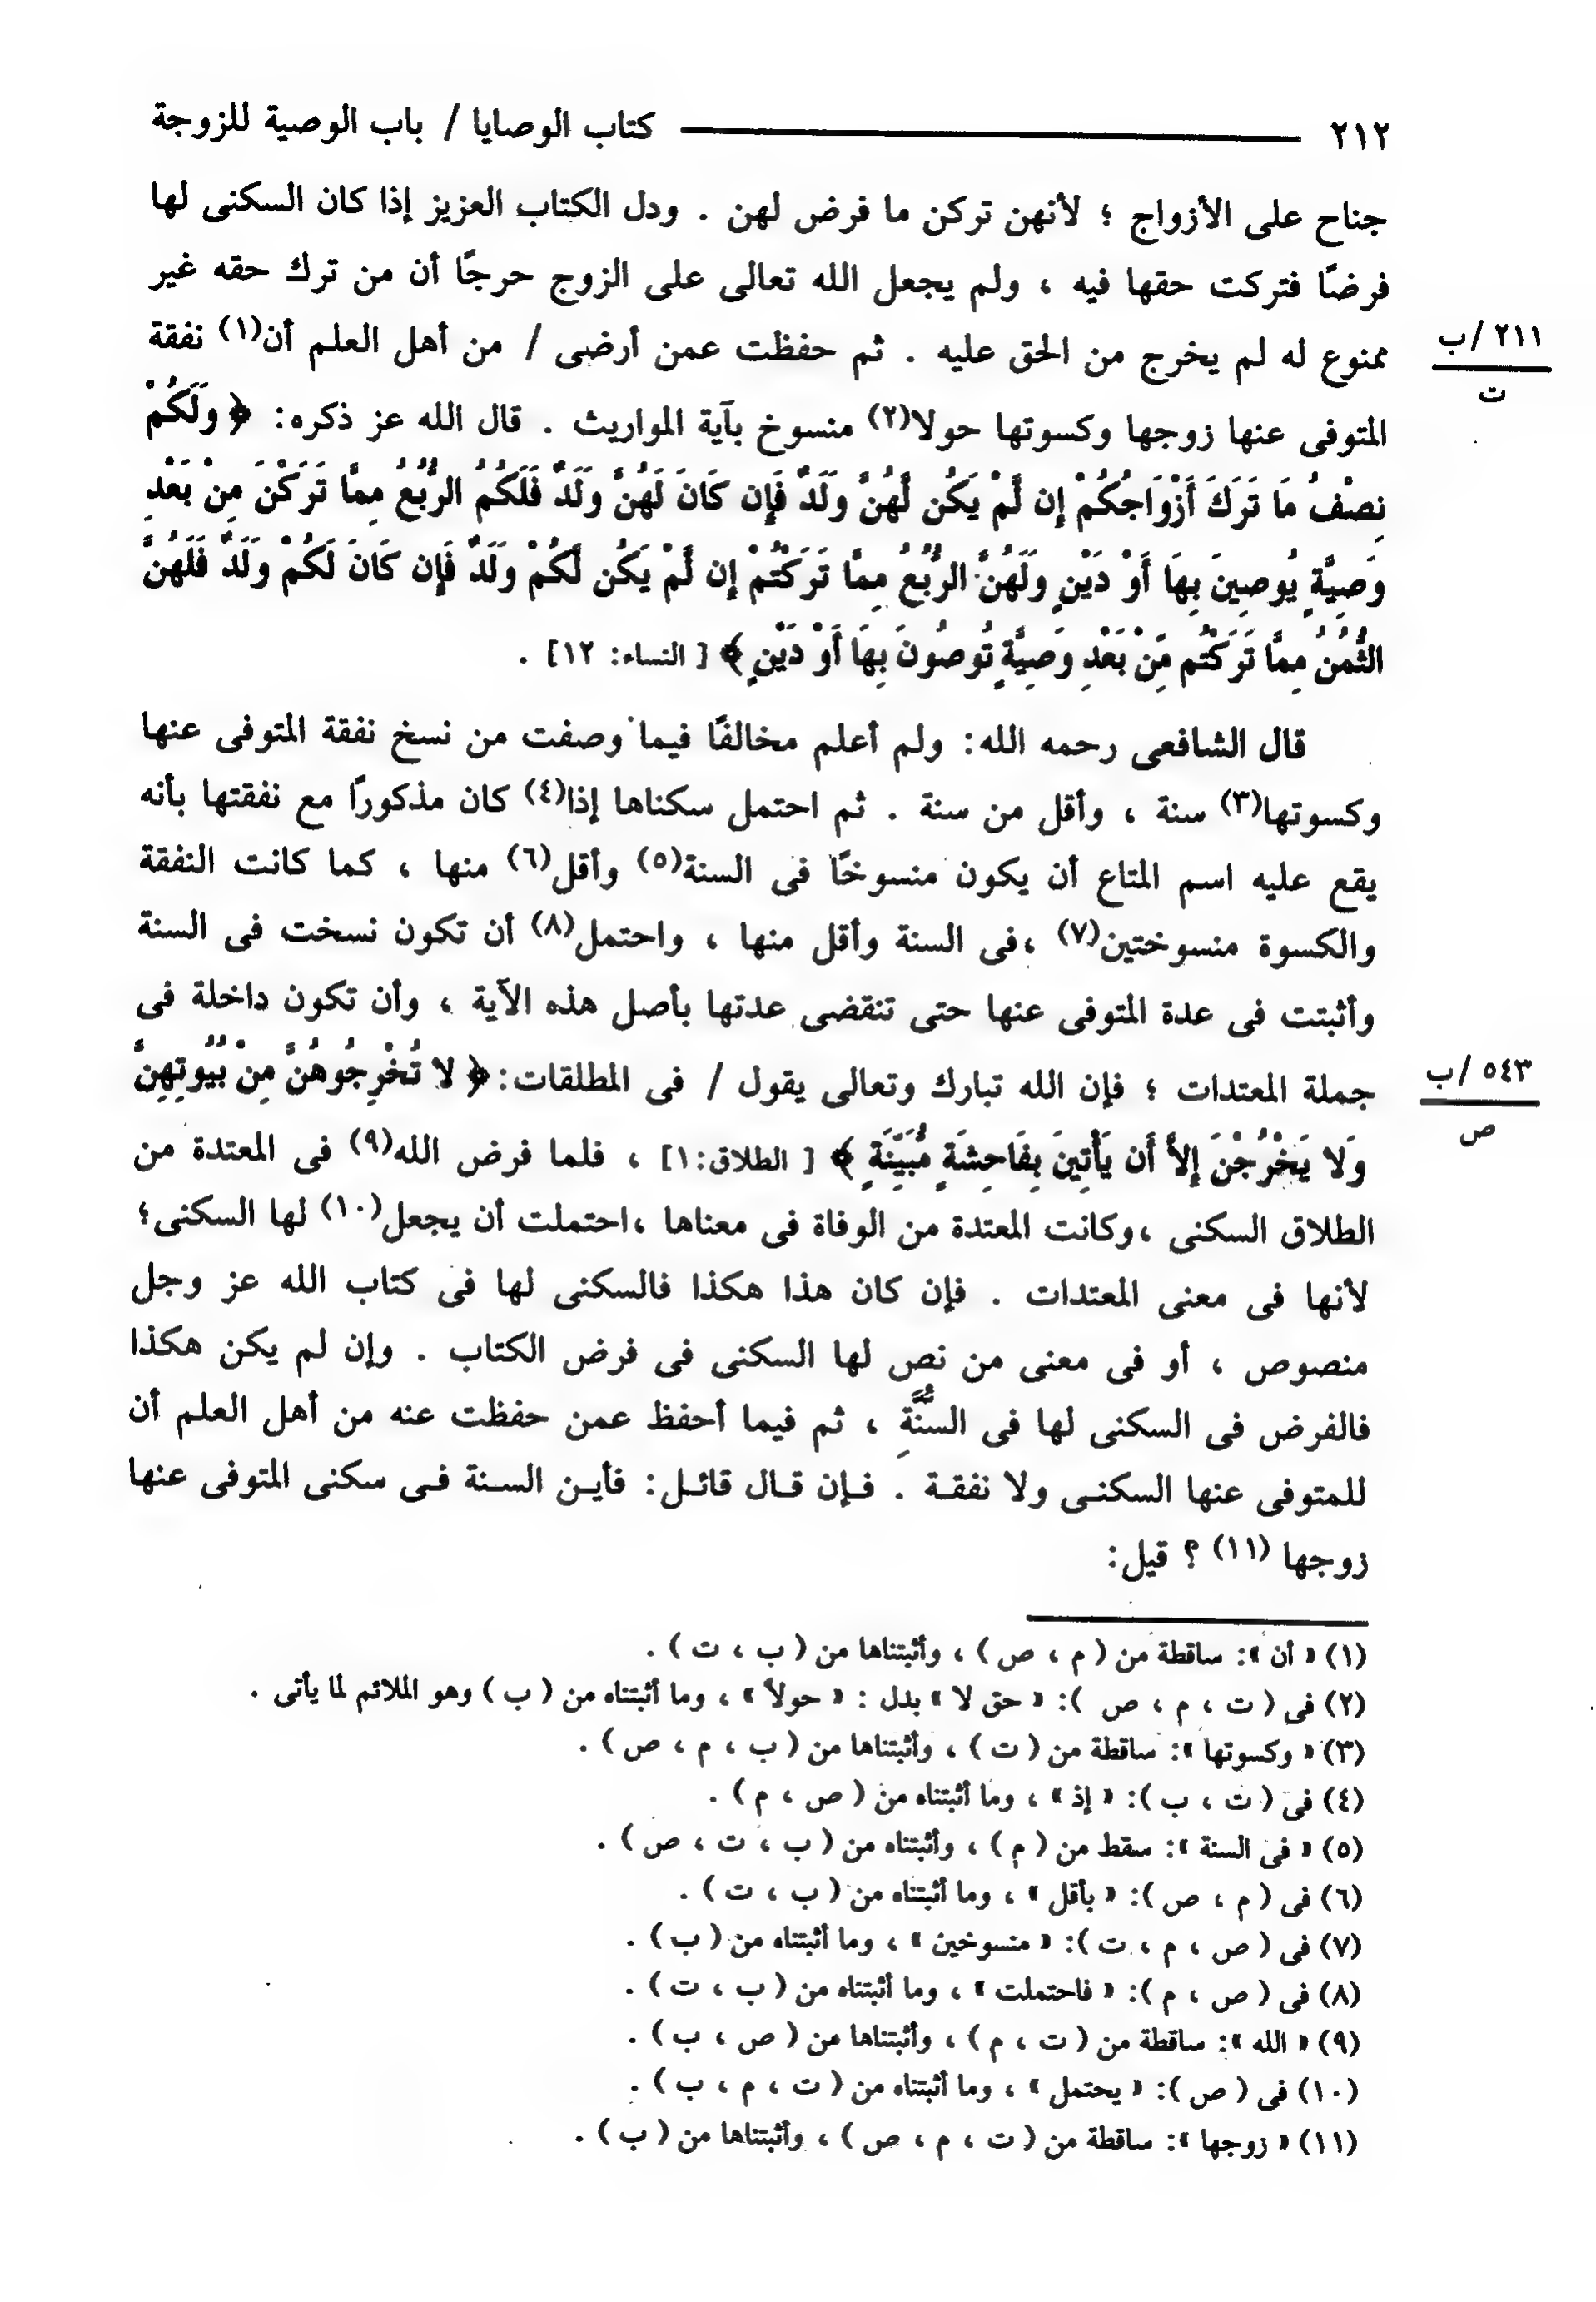 ٢١٢ كتاب الوصايا / باب الوصية للزوجة
جناح على الأزواج ؛ لأنهن تركن ما فرض لهن . ودل الكتاب العزيز إذا كان السكنى لها
فرضًا فتركت حقها فيه ، ولم يجعل الله تعالى على الزوج حرجًا أن من ترك حقه غير
ممنوع له لم يخرج من الحق عليه . ثم حفظت عمن أرضى / من أهل العلم أن(١) نفقة
٢١١ /ب
ت
المتوفى عنها زوجها وكسوتها حولا(٢) منسوخ بآية المواريث . قال الله عز ذكره: ﴿ وَلَكُمْ
نِصْفُ مَا تَرَكَ أَزْوَاجُكُمْ إِن لَّمْ يَكُن لَّهُنَّ وَلَدٌ فَإِن كَانَ لَهُنَّ وَلَدٌ فَلَكُمُ الرُّبُعُ مِمَّا تَرَكْنَ مِنْ بَعْدِ
وَصِيَّةٍ يُوصِينَ بِهَا أَوْ دَيْنٍ وَلَهُنَّ الرُّبُعُ مِمَّا تَرَكْتُمْ إِن لَّمْ يَكُن لَّكُمْ وَلَدٌ فَإِن كَانَ لَكُمْ وَلَدٌ فَلَهُنَّ
الثُّمُنُ مِمَّا تَرَكْتُم مِّنْ بَعْدِ وَصِيَّةٍ تُوصُونَ بِهَا أَوْ دَيْنٍ ﴾ [ النساء: ١٢] .
قال الشافعى رحمه الله: ولم أعلم مخالفًا فيما وصفت من نسخ نفقة المتوفى عنها
وكسوتها(٣) سنة ، وأقل من سنة . ثم احتمل سكناها إذا(٤) كان مذكورًا مع نفقتها بأنه
يقع عليه اسم المتاع أن يكون منسوخًا فى السنة(٥) وأقل(٦) منها ، كما كانت النفقة
والكسوة منسوختين(٧) ،فى السنة وأقل منها ، واحتمل(٨) أن تكون نسخت فى السنة
وأثبتت فى عدة المتوفى عنها حتى تنقضى عدتها بأصل هذه الآية ، وأن تكون داخلة فى
جملة المعتدات ؛ فإن الله تبارك وتعالى يقول / فى المطلقات: ﴿ لا تُخْرِجُوهُنَّ مِنْ بُيُوتِهِنَّ
٥٤٣ /ب
ص
وَلا يَخْرُجْنَ إِلاَّ أَن يَأْتِينَ بِفَاحِشَةٍ مُّبَيِّنَةٍ ﴾ [ الطلاق:١] ، فلما فرض الله(٩) فى المعتدة من
الطلاق السكنى ،وكانت المعتدة من الوفاة فى معناها ،احتملت أن يجعل(١٠) لها السكنى؛
لأنها فى معنى المعتدات . فإن كان هذا هكذا فالسكنى لها فى كتاب الله عز وجل
منصوص ، أو فى معنى من نص لها السكنى فى فرض الكتاب . وإن لم يكن هكذا
فالفرض فى السكنى لها فى السُّنَّةِ ، ثم فيما أحفظ عمن حفظت عنه من أهل العلم أن
للمتوفى عنها السكنى ولا نفقة . فإن قال قائل: فأين السنة فى سكنى المتوفى عنها
زوجها (١١) ؟ قيل:
(١) « أن »: ساقطة من ( م ، ص ) ، وأثبتناها من ( ب ، ت ) .
(٢) فى ( ت ، م ، ص ): « حق لا » بدل : « حولاً » ، وما أثبتناه من ( ب ) وهو الملائم لما يأتى .
(٣) « وكسوتها »: ساقطة من ( ت ) ، وأثبتناها من ( ب ، م ، ص ) .
(٤) فى ( ت ، ب ): « إذ » ، وما أثبتناه من ( ص ، م ) .
(٥) « فى السنة »: سقط من ( م ) ، وأثبتناه من ( ب ، ت ، ص ) .
(٦) فى ( م ، ص ): « بأقل » ، وما أثبتناه من ( ب ، ت ) .
(٧) فى ( ص ، م ، ت ): « منسوخين » ، وما أثبتناه من ( ب ) .
(٨) فى ( ص ، م ): « فاحتملت » ، وما أثبتناه من ( ب ، ت ) .
(٩) « الله »: ساقطة من ( ت ، م ) ، وأثبتناها من ( ص ، ب ) .
(١٠) فى ( ص ): « يحتمل » ، وما أثبتناه من ( ت ، م ، ب ) .
(١١) « زوجها »: ساقطة من ( ت ، م ، ص ) ، وأثبتناها من ( ب ) .